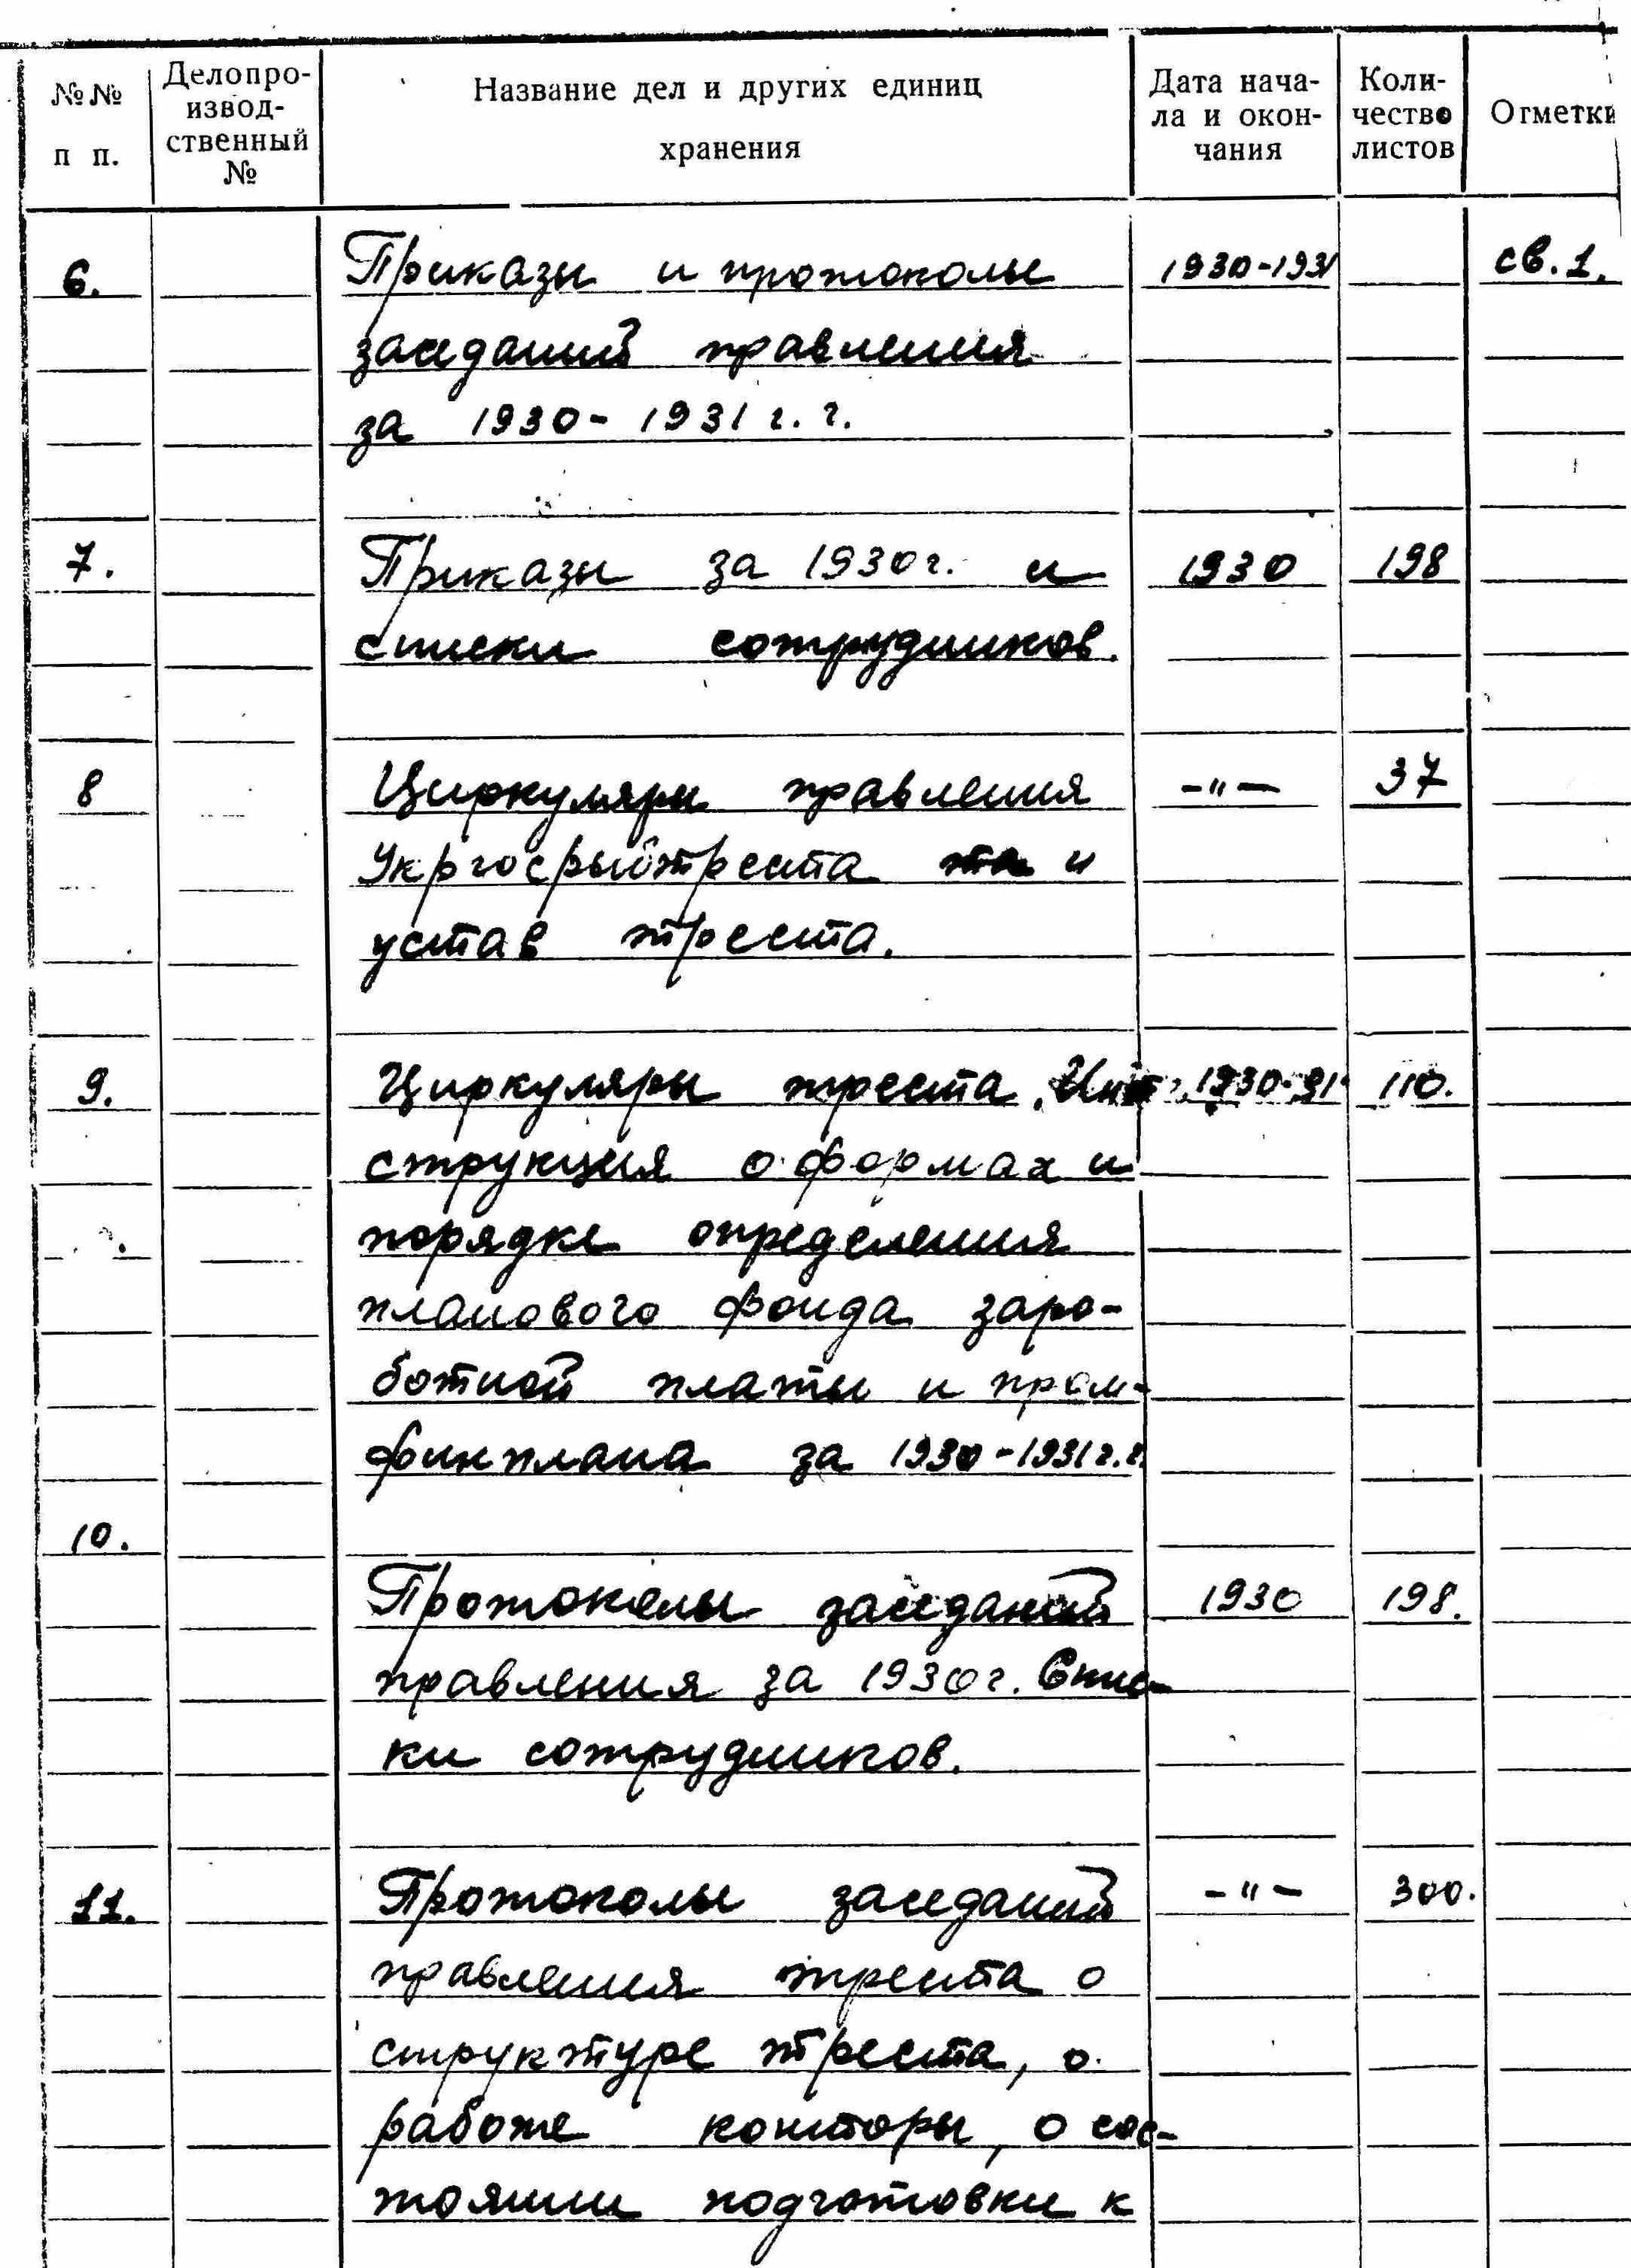 №№ п п.
Делопро-
извод-
ственный
№
Название дел и других единиц
хранения
Дата нача-
ла и окон-
чания
Коли-
чество
листов
Отметки
6. Приказы и протоколы 1930-1931 св. 1.
заседаний правления
за 1930-1931 г. г.
7. Приказы за 1930 г. и 1930 198
списки сотрудников.
8 Циркуляры правления -"- 37
Укргосрыбтреста и
устав треста.
9. Циркуляры треста. Ин- 1930-31 110.
струкция о формах и
порядке определения
планового фонда зара-
ботной платы и пром-
финплана за 1930-1931 г. г.
10.
Протоколы заседаний 1930 198.
правления за 1930 г. Спис-
ки сотрудников.
11. Протоколы заседаний -"- 300.
правления треста о
структуре треста, о
работе конторы, о сос-
тоянии подготовки к